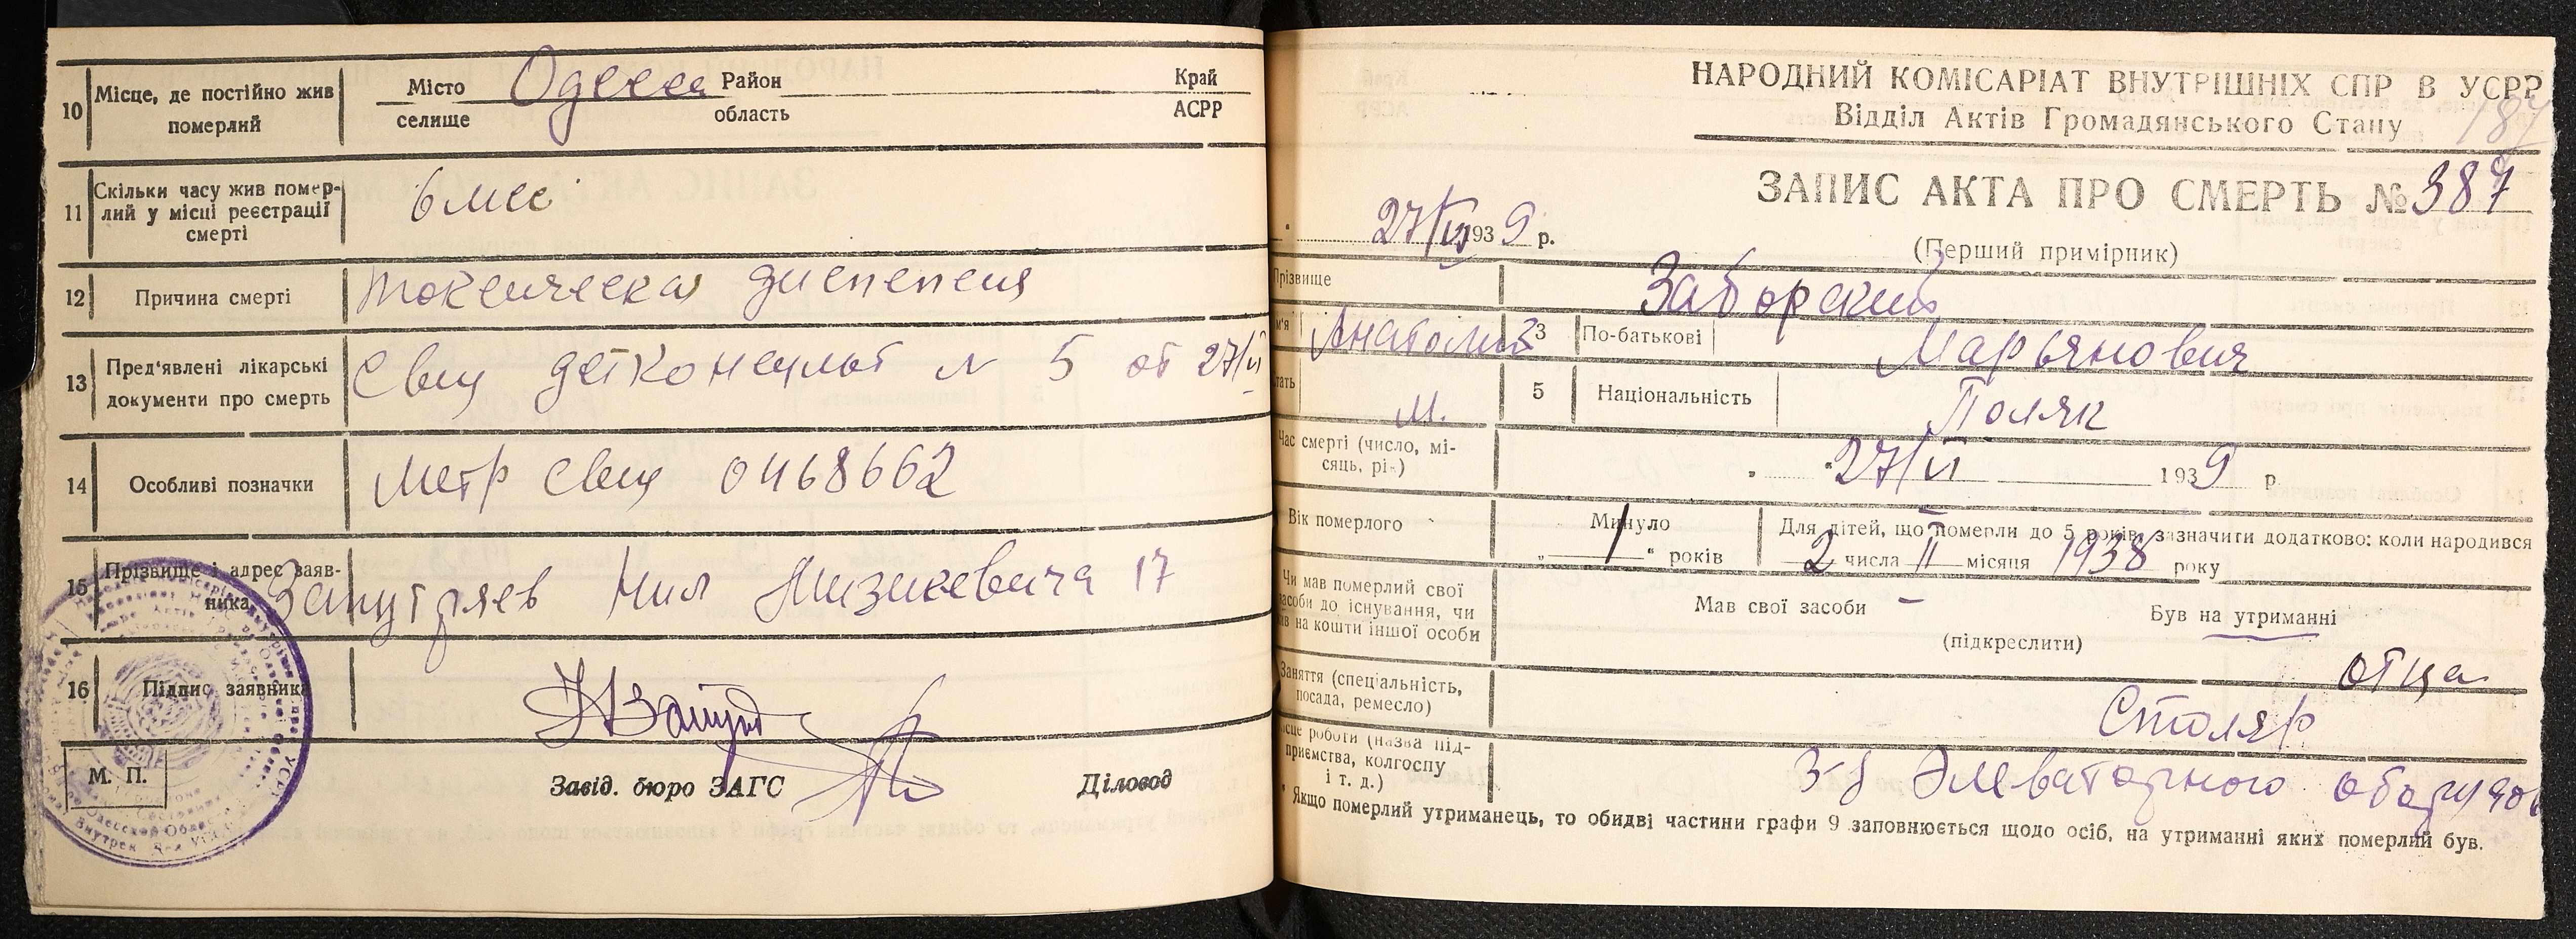 10
Місце, де постійно жив
померлий
Місто
селище
Одесса
Район
область
Край
АСРР
11
Скільки часу жив помер-
лий у місці реєстрації
смерті
6 мес
12
Причина смерті
токсическая диспепсия
13
Пред'явлені лікарські
документи про смерть
Свид детконсульт N 5 от 27/VI
14
Особливі позначки
Метр свид 0468662
15
Прізвище і адрес заяв-
ника
Нил 17
16
Підпис заявника
М. П.
Завід. бюро ЗАГС
Діловод
НАРОДНИЙ КОМІСАРІАТ ВНУТРІШНІХ СПР В УСРР
Відділ Актів Громадянського Стану
187
ЗАПИС АКТА ПРО СМЕРТЬ № 387
27/VI 1939 р.
(Перший примірник)
Прізвище
Заборский
м'я
Анатолий
3
По-батькові
Марьянович
тать
м.
5
Національність
Поляк
Час смерті (число, мі-
сяць, рі-)
27/VI 1939 р.
Вік померлого
Минуло
„ 1 “ років
Для дітей, що померли до 5 років, зазначити додатково: коли народився
2 числа II місяця 1938 року
Чи мав померлий свої
засоби до існування, чи
на кошти іншої особи
Мав свої засоби –
Був на утриманні
(підкреслити)
отца
Заняття (спеціальність,
посада, ремесло)
Столяр
місце роботи (назва під-
приємства, колгоспу
і т. д.)
З-д Элеваторного оборудов
* Якщо померлий утриманець, то обидві частини графи 9 заповнюється щодо осіб, на утриманні яких померлий був.